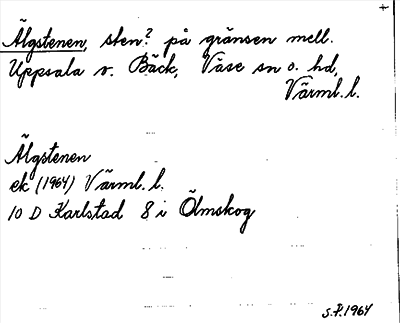 +
Älgstenen, sten? på gränsen mell.
Uppsala o. Bäck, Väse sn o. hd,
Värml. l.
Älgstenen
ek (1964) Värml. l.
10 D Karlstad 8 i Ölmskog
S.P. 1964